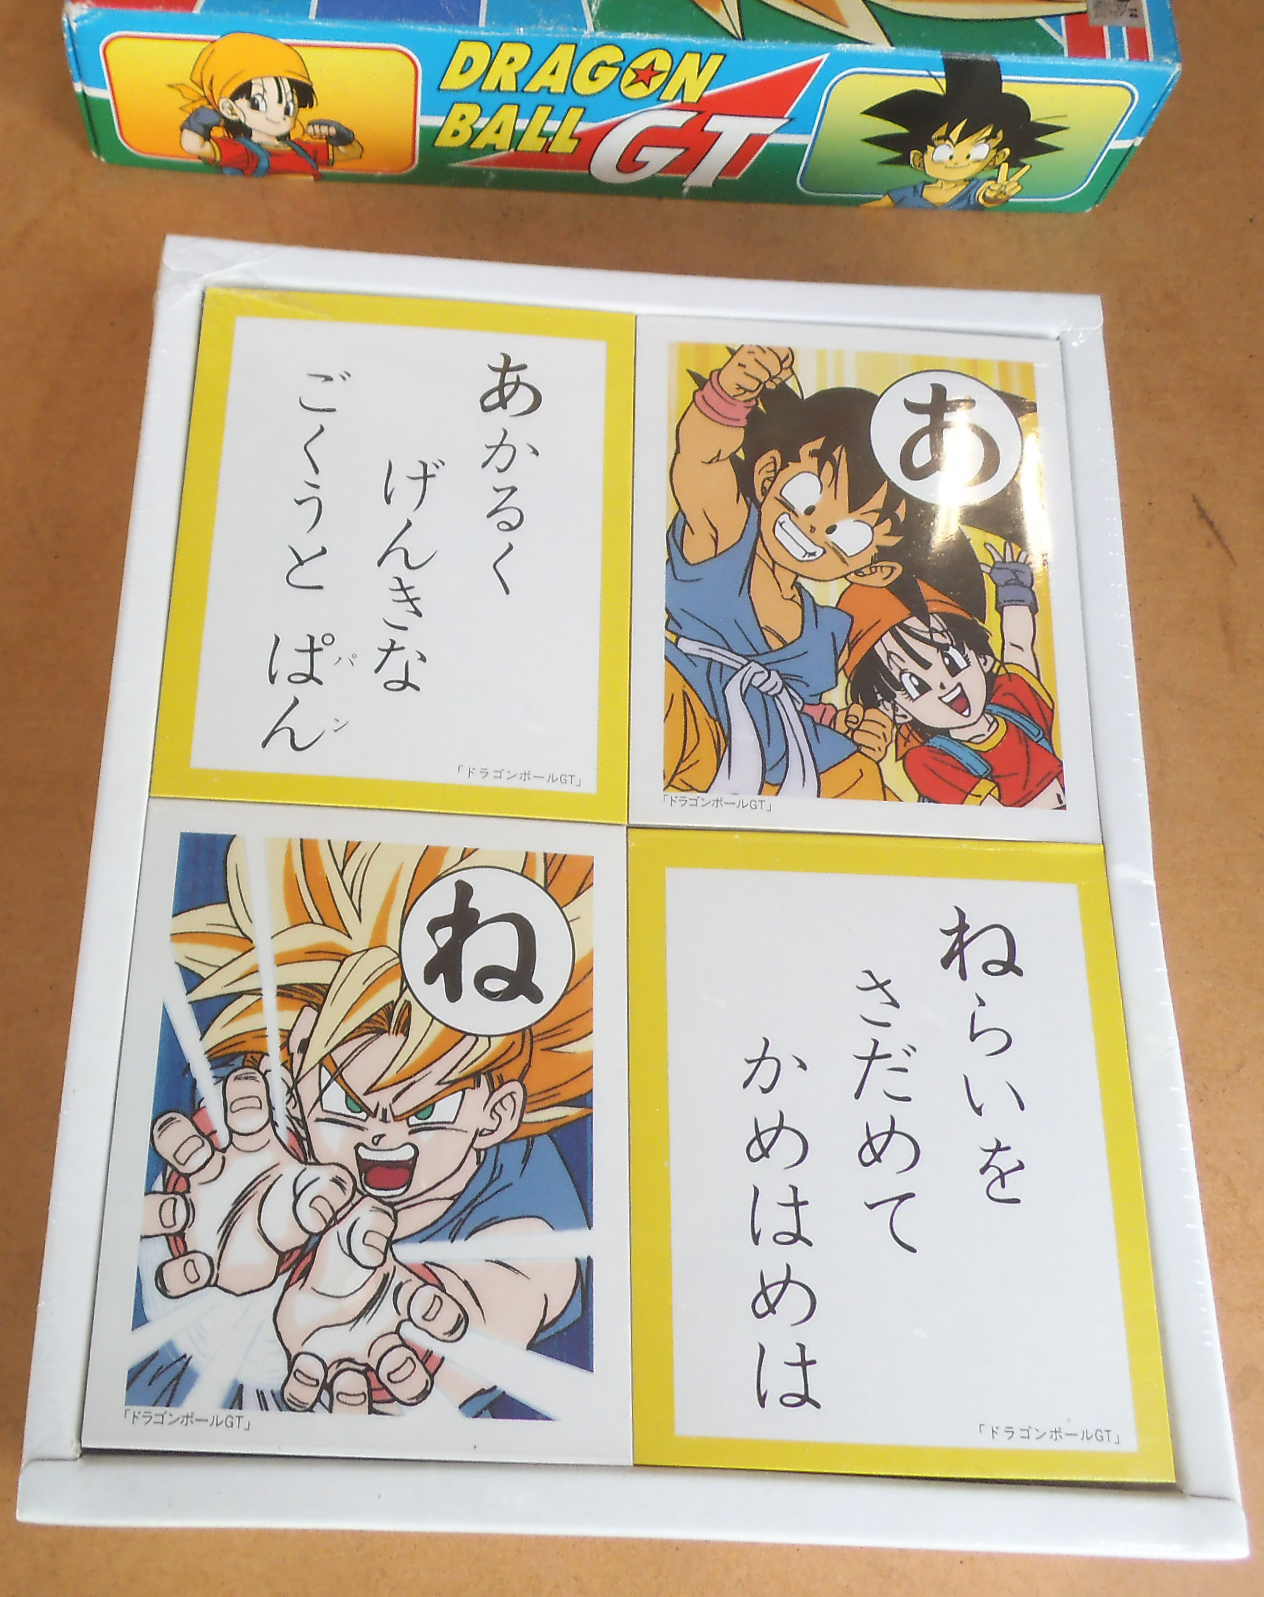 DRAGON
BALL GT
あかるく
げんきな
ごくうと ぱん
パン
「ドラゴンボールGT」
あ
「ドラゴンボールGT」
ね
「ドラゴンボールGT」
ねらいを
さだめて
かめはめは
「ドラゴンボールGT」